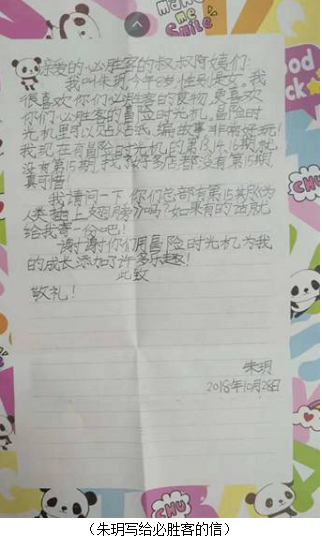 亲爱的必胜客的叔叔阿姨们:
我叫朱玥,今年8岁,性别是女。我
很喜欢你们必胜客的食物,更喜欢
你们必胜客的冒险时光机。冒险时
光机里可以贴贴纸,编故事,非常好玩!
我现在有冒险时光机的第13,14,16期,就
没有第15期,我找了许多店都没有第15期,
真可惜。
我请问一下,你们总部有第15期《为
人类插上翅膀》吗?如果有的话就
给我寄一份吧!
谢谢你们用冒险时光机为我
的成长添加了许多乐趣!
此致
敬礼!
朱玥
2018年10月28日
MAKE
me
SMILE
Good
Luck
CHU
CHU
(朱玥写给必胜客的信)